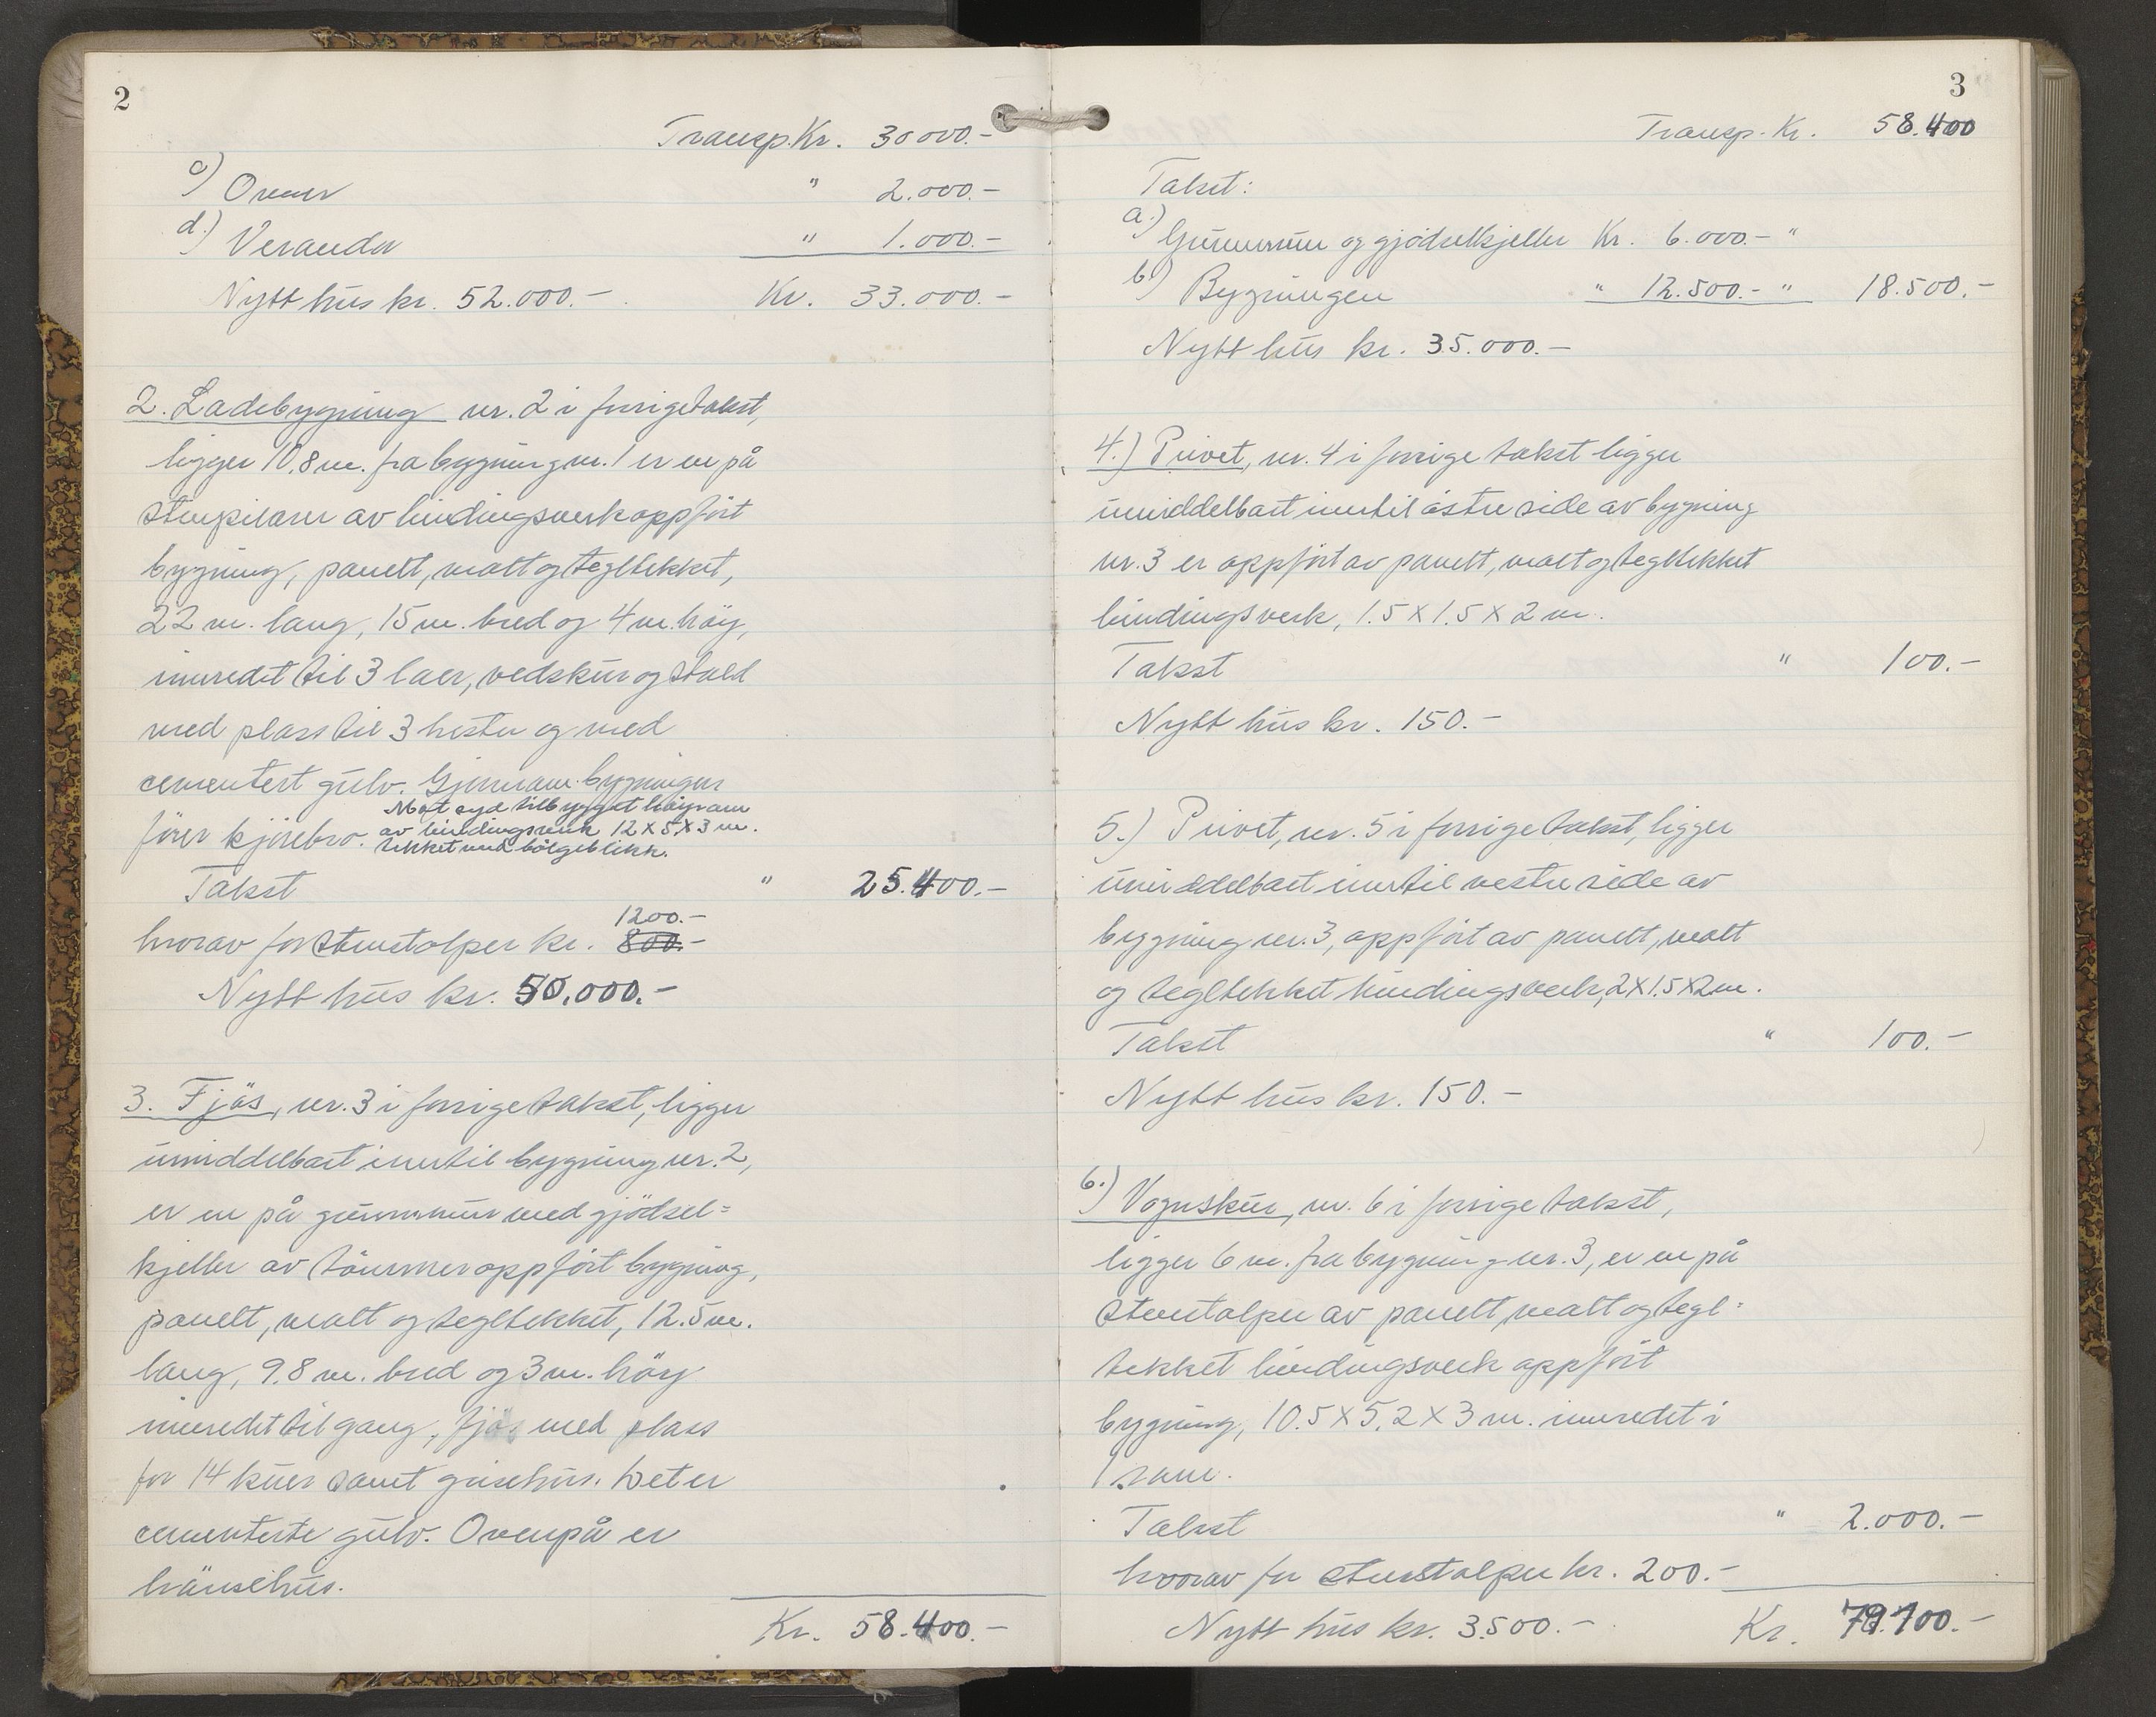 2
Transp. Kr. 30000.-
c) Ovner " 2.000.-
d.) Veranda " 1.000.-
Nytt hus kr. 52.000.- Kr. 33.000.-
2. Ladebygning nr. 2 i forrige takst,
ligger 10,8 m. fra bygning nr. 1 er en på
stenpilarer av bindingsverk oppfört
bygning, panelt, malt og tegltekket,
22 m. lang, 15 m. bred og 4 m. höy,
innredet til 3 laer, vedskur og stald
med plass til 3 hester og med
cementert gulv. Gjennem bygningen
förer kjörebro. Mot syd tilbygget höyrom
av bindingsverk 12 X 5 X 3 m.
tekket med bölgeblikk.
Takst " 25.400.-
1200.-
hvorav for stenstolper kr. 800.-
Nytt hus kr. 50.000.-
3. Fjös, nr. 3 i forrige takst, ligger
umiddelbart inntil bygning nr. 2,
er en på grunnmur med gjödsel=
kjeller av tömmer oppfört bygning,
panelt, malt og tegltekket, 12.5 m.
lang, 9.8 m. bred og 3 m. höy
innredet til gang, fjös med plass
for 14 kuer samt grisehus. Det er
cementerte gulv. Ovenpå er
hönsehus.
Kr. 58.400.-
3
Transp. Kr. 58.400
Takst:
a.) Grunnmur og gjödselkjeller Kr. 6.000.- "
b) Bygningen " 12.500.- " 18.500.-
Nytt hus kr. 35.000.-
4.) Privet, nr. 4 i forrige takst ligger
umiddelbart inntil östre side av bygning
nr. 3 er oppfört av panelt, malt og tegltekket
bindingsverk, 1.5 X 1.5 X 2 m.
Takst " 100.-
Nytt hus kr. 150.-
5.) Privet, nr. 5 i forrige takst, ligger
umiddelbart inntil vestre side av
bygning nr. 3, oppfört av panelt, malt
og tegltekket bindingsverk, 2 X 1.5 X 2 m.
Takst " 100.-
Nytt hus kr. 150.-
6.) Vognskur, nr. 6 i forrige takst,
ligger 6 m. fra bygning nr. 3, er en på
stenstolper av panelt, malt og tegl=
tekket bindingsverk oppfört
bygning, 10.5 X 5,2 X 3 m. innredet i
1 rom.
Takst " 2.000.-
hvorav for stenstolper kr. 200.-
Nytt hus kr. 3.500.- Kr. 79.100.-